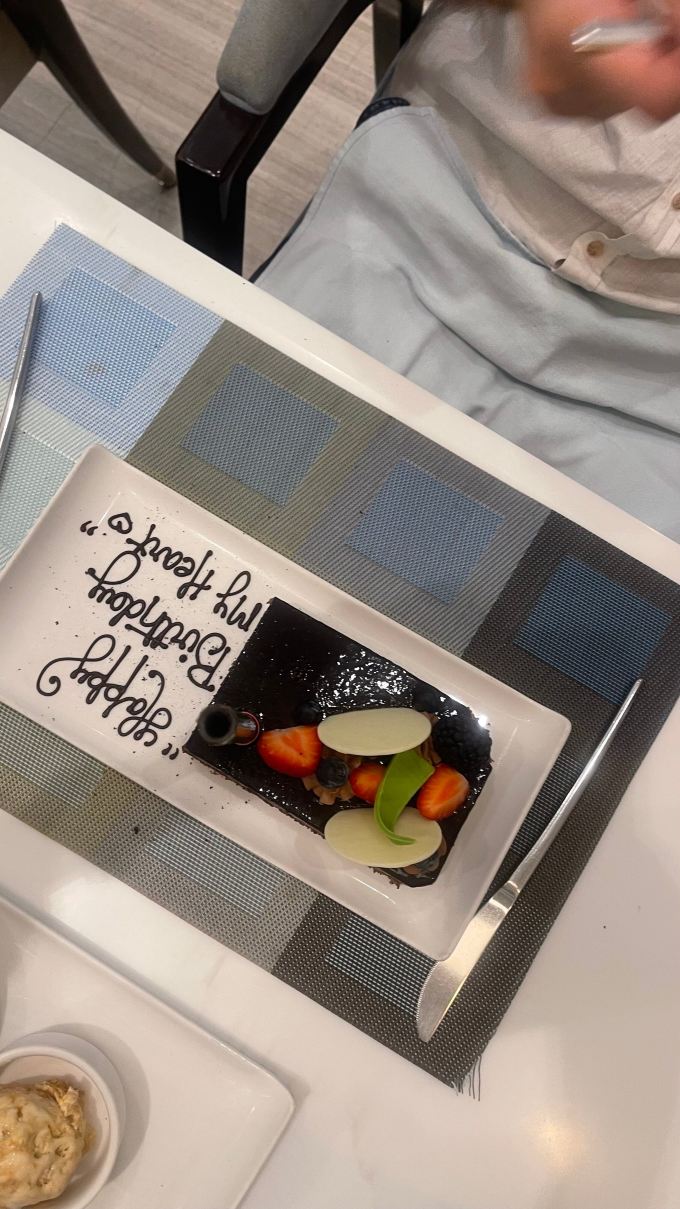 "Happy
Birthday
My Heart ♡"